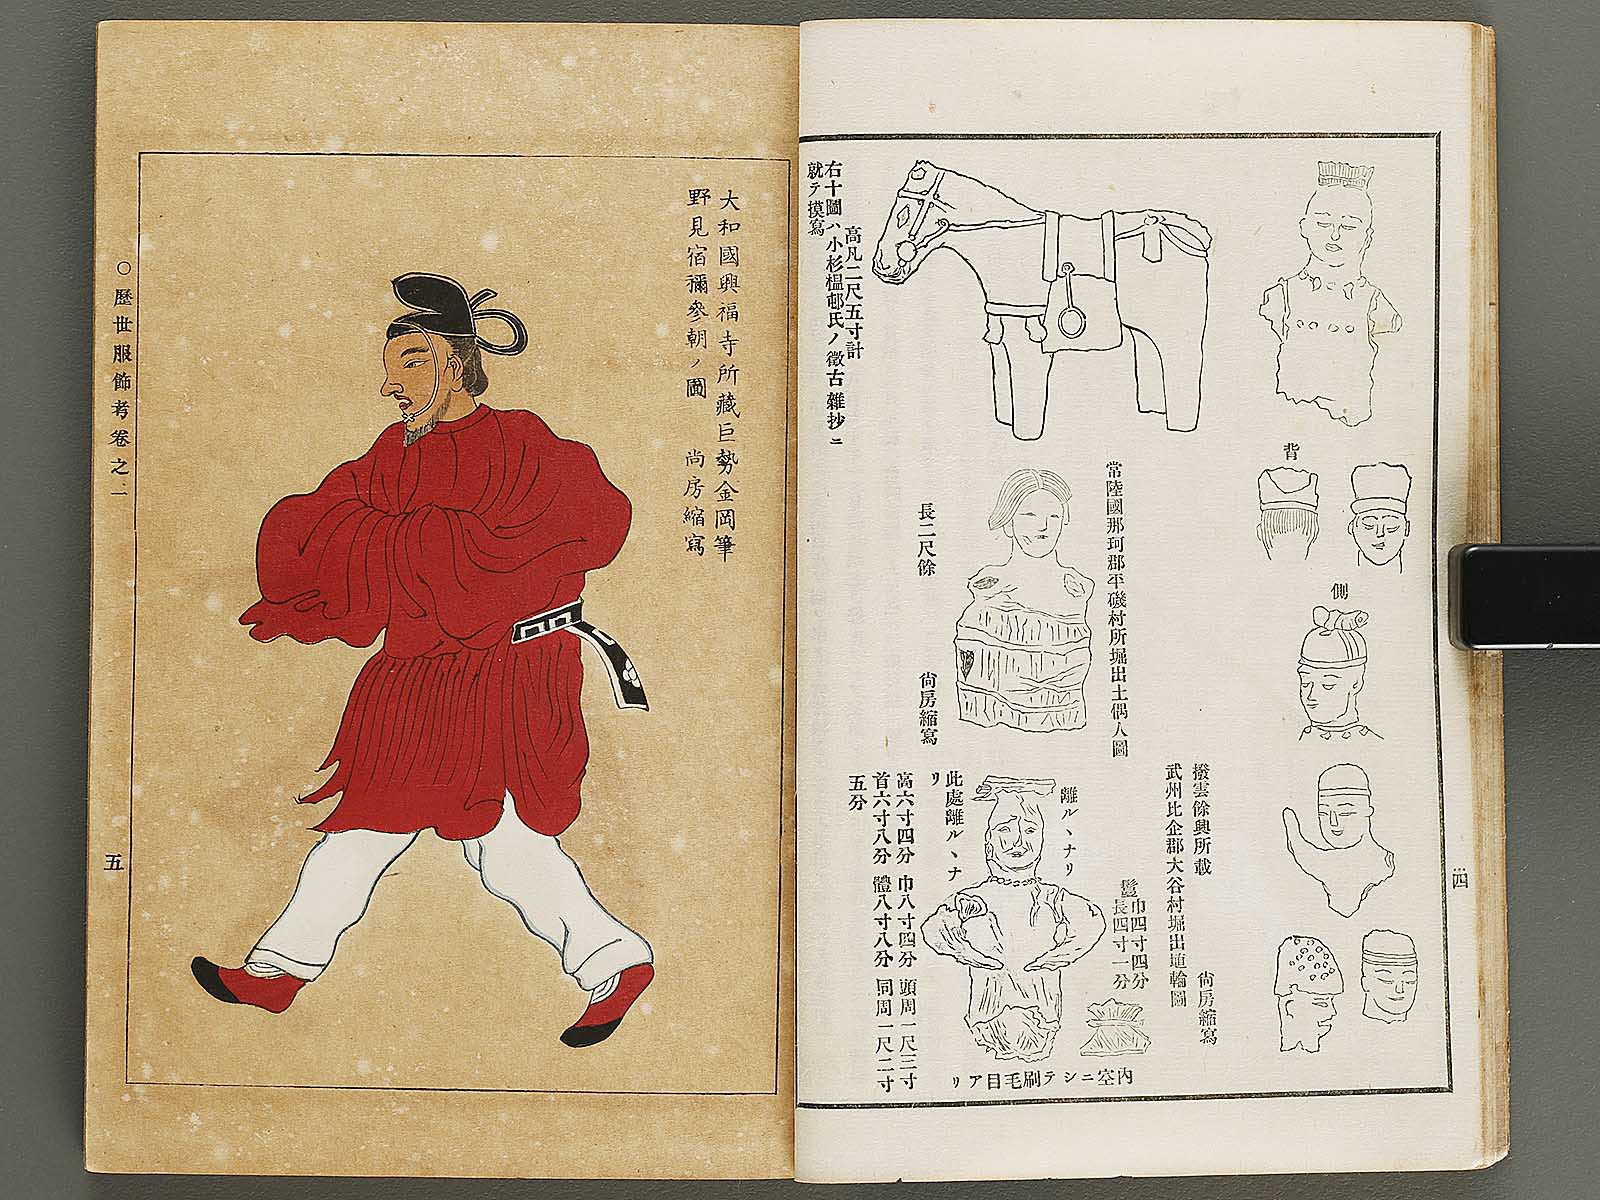 四
背
側
撥雲餘興所載
武州比企郡大谷村堀出埴輪圖
尙房縮寫
常陸國那珂郡平磯村所堀出土偶人圖
長二尺餘
尙房縮寫
巾四寸四分
鬟長四寸一分
離ルヽナリ
此處離ルヽナ
リ
高六寸四分 巾八寸四分 頭周一尺三寸
首六寸八分 體八寸八分 同周一尺二寸
五分
内空ニシテ刷毛目アリ
高凡二尺五寸計
右十圖ハ小杉榲邨氏ノ徵古雜抄ニ
就テ摸寫
大和國興福寺所藏巨勢金岡筆
野見宿禰參朝ノ圖 尚房縮寫
○歷世服飾考卷之一
五